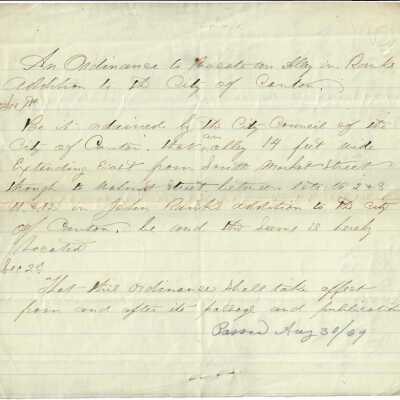 An Ordinance to Vacate an Alley in Ranks
Addition to the City of Canton.
Sec 1st
Be it ordained by the City Council of the
City of Canton that an alley 14 feet wide
Extending East from South Market Street
through to Walnut Street between lots
in John Rank's addition to the City
of Canton, be and the same is hereby
Vacated
Sec 2d
That this Ordinance shall take affect
from and after its passage and publication
Passed Aug 30/69